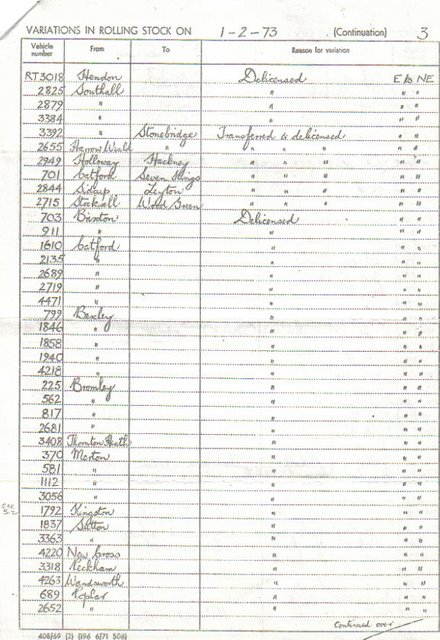 VARIATIONS IN ROLLING STOCK ON 1-2-73 (Continuation) 3
Vehicle number From To Reason for variation
RT3018 Hendon Delicensed E & NE
2825 Southall " " "
2879 " " " "
3384 " " " "
3392 " Stonebridge Transferred & delicensed " "
2655 Harrow Weald " " " " " "
2949 Holloway Hackney " " " " "
701 Catford Seven Kings " " " " "
2844 Sidcup Leyton " " " " "
2715 Stockwell Wood Green " " " " "
703 Brixton Delicensed " "
911 " " " "
1610 Catford " " "
2135 " " " "
2689 " " " "
2719 " " " "
4471 " " " "
799 Bexley " " "
1846 " " " "
1858 " " " "
1940 " " " "
4218 " " " "
225 Bromley " " "
562 " " " "
817 " " " "
2681 " " " "
3408 Thornton Heath " " "
370 Merton " " "
581 " " " "
1112 " " " "
3056 " " " "
1792 Kingston " " "
1837 Sutton " " "
3363 " " " "
4220 New Cross " " "
3318 Peckham " " "
4263 Wandsworth " " "
689 Poplar " " "
2652 " " " "
Continued over
408/69 (2) (196 6/71 508)